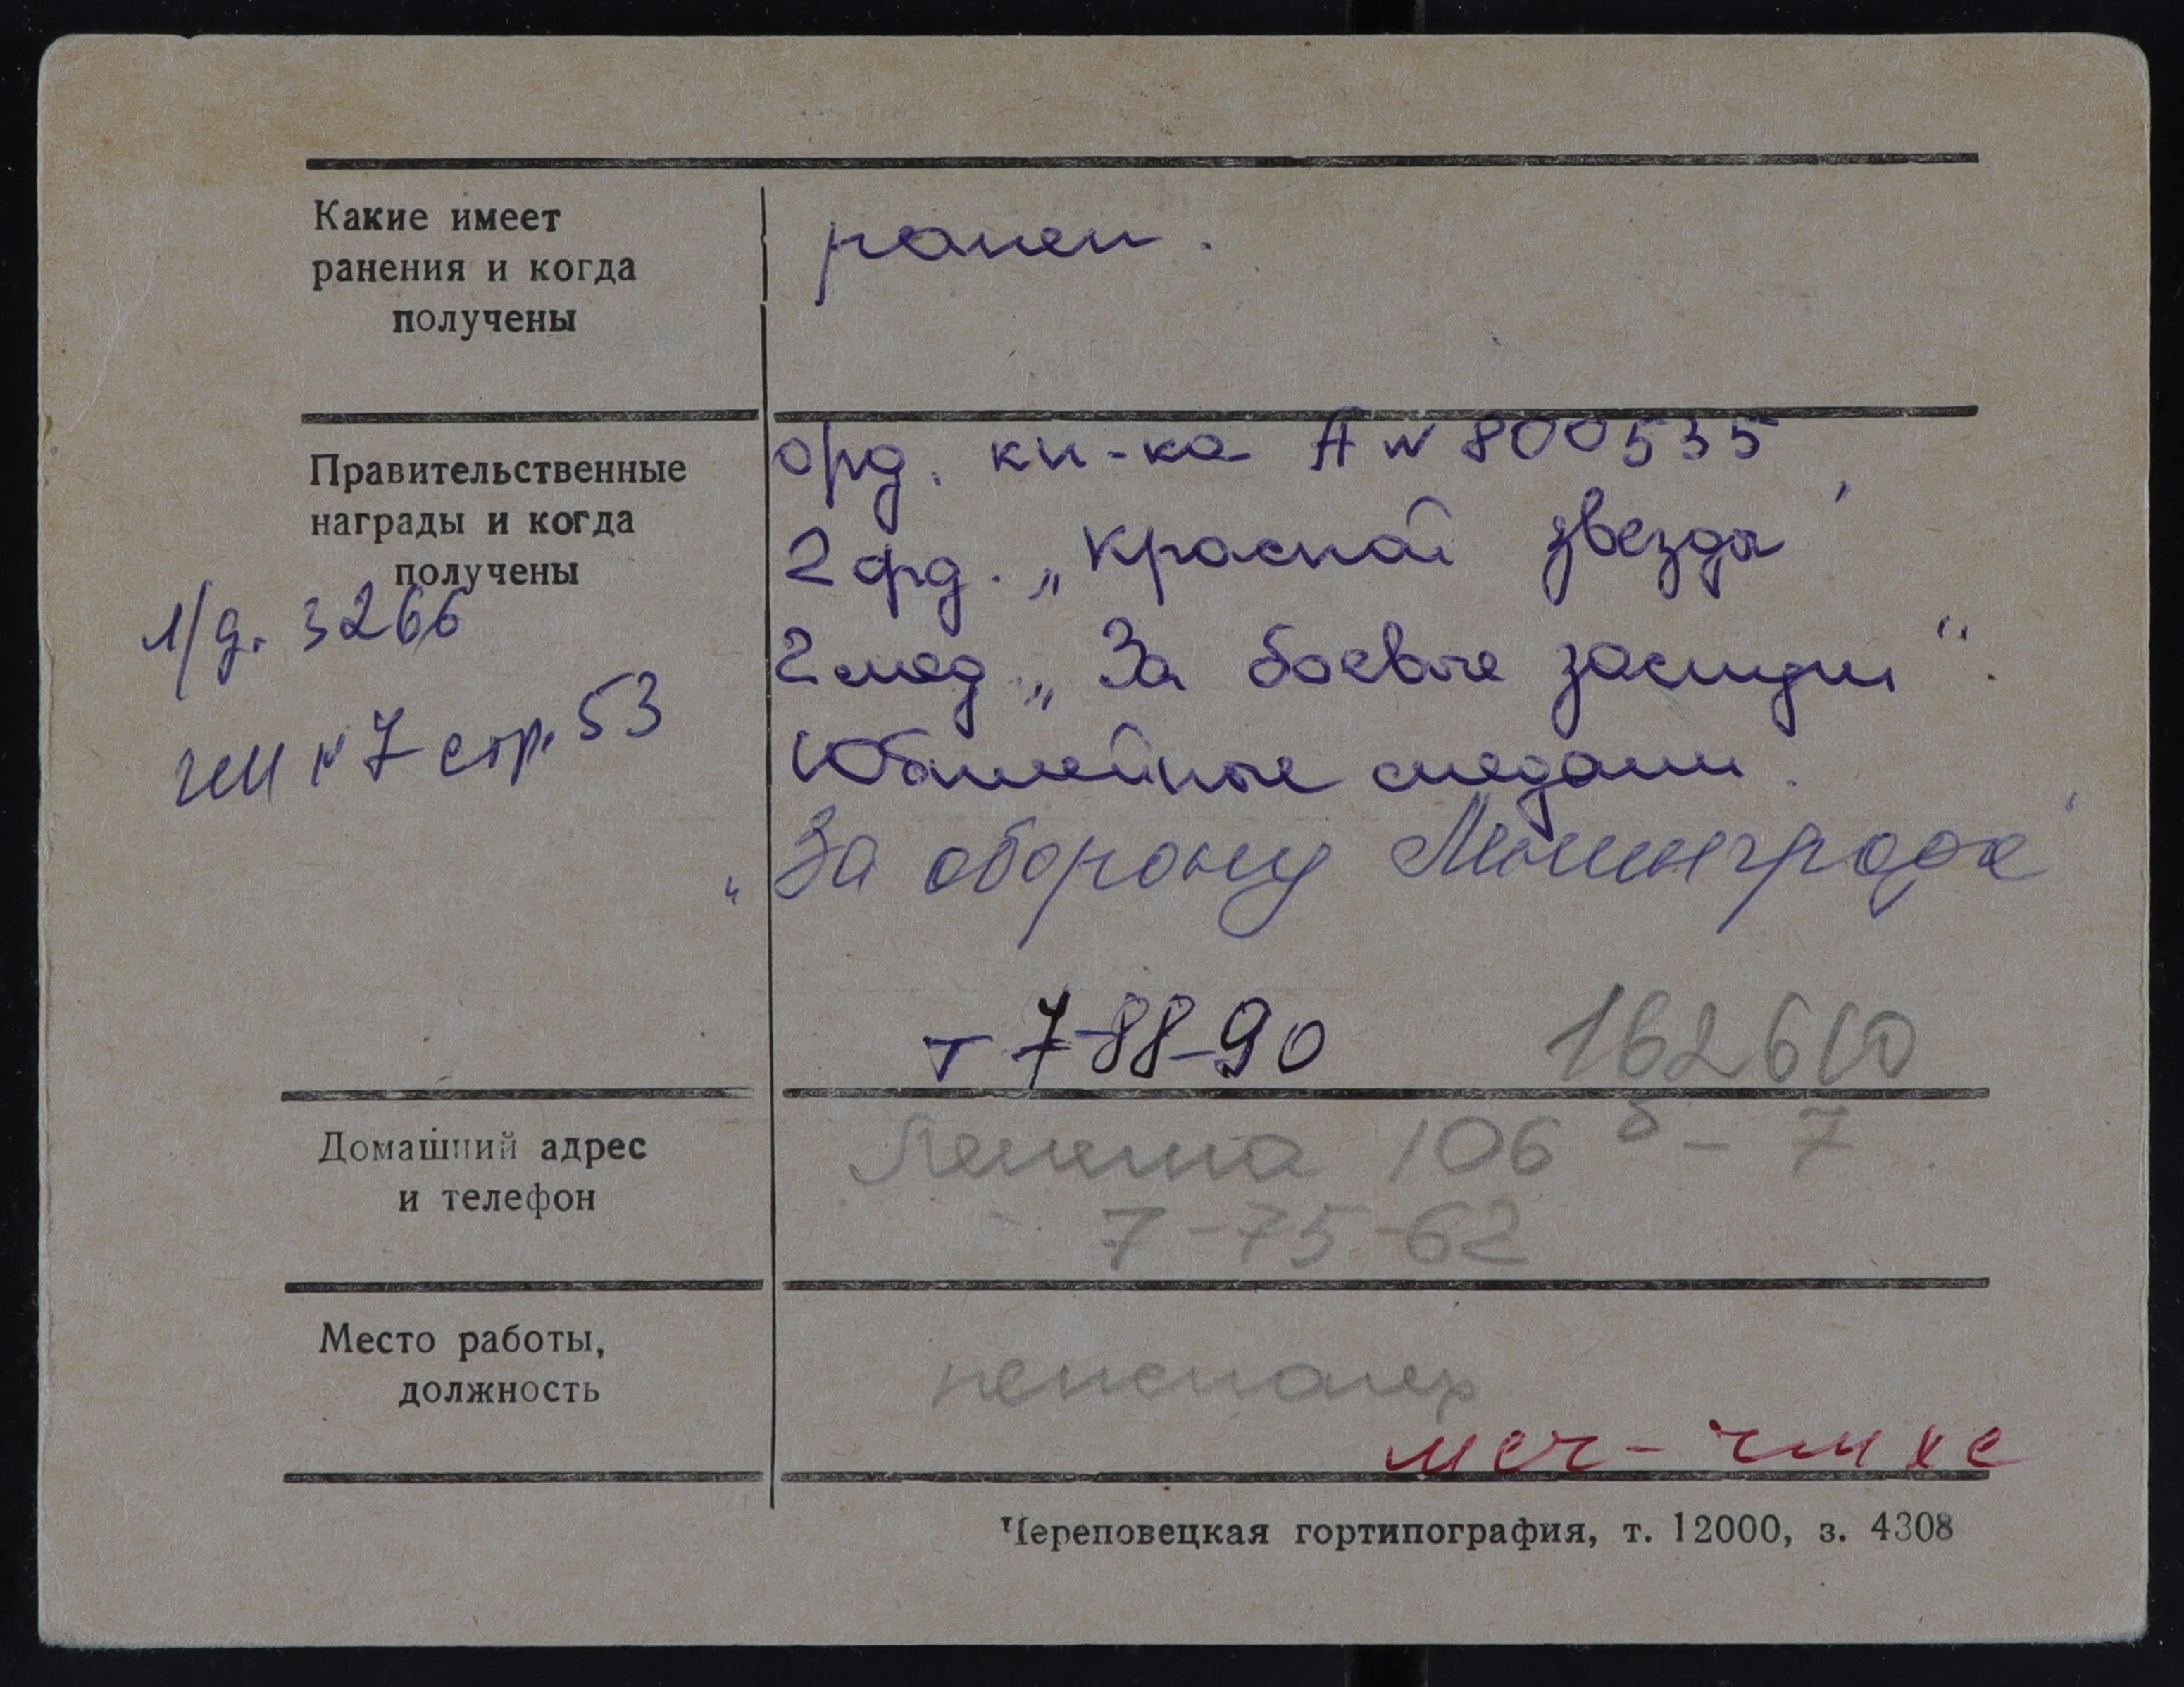 Какие имеет
ранения и когда
получены
ранен.
Правительственные
награды и когда
получены
л/д. 3266
№7 стр. 53
орд. кн-ка А № 800535,
2 орд. „Красной звезды"
2 мед „За боевые заслуги".
Юбилейные медали.
„За оборону Ленинграда"
т 7-88-90
162610
Домашний адрес
и телефон
Ленина 106 б - 7
7-75-62
Место работы,
должность
пенсионер
Череповецкая гортипография, т. 12000, з. 4308